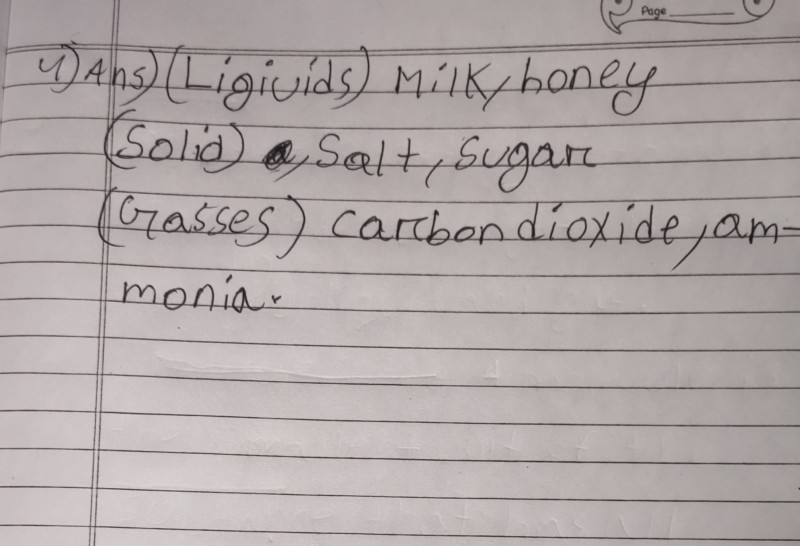 Page
4) Ans) (Ligivids) Milk, honey
(Solid) , Salt, Sugar
(Gasses) Carbondioxide, am-
monia.